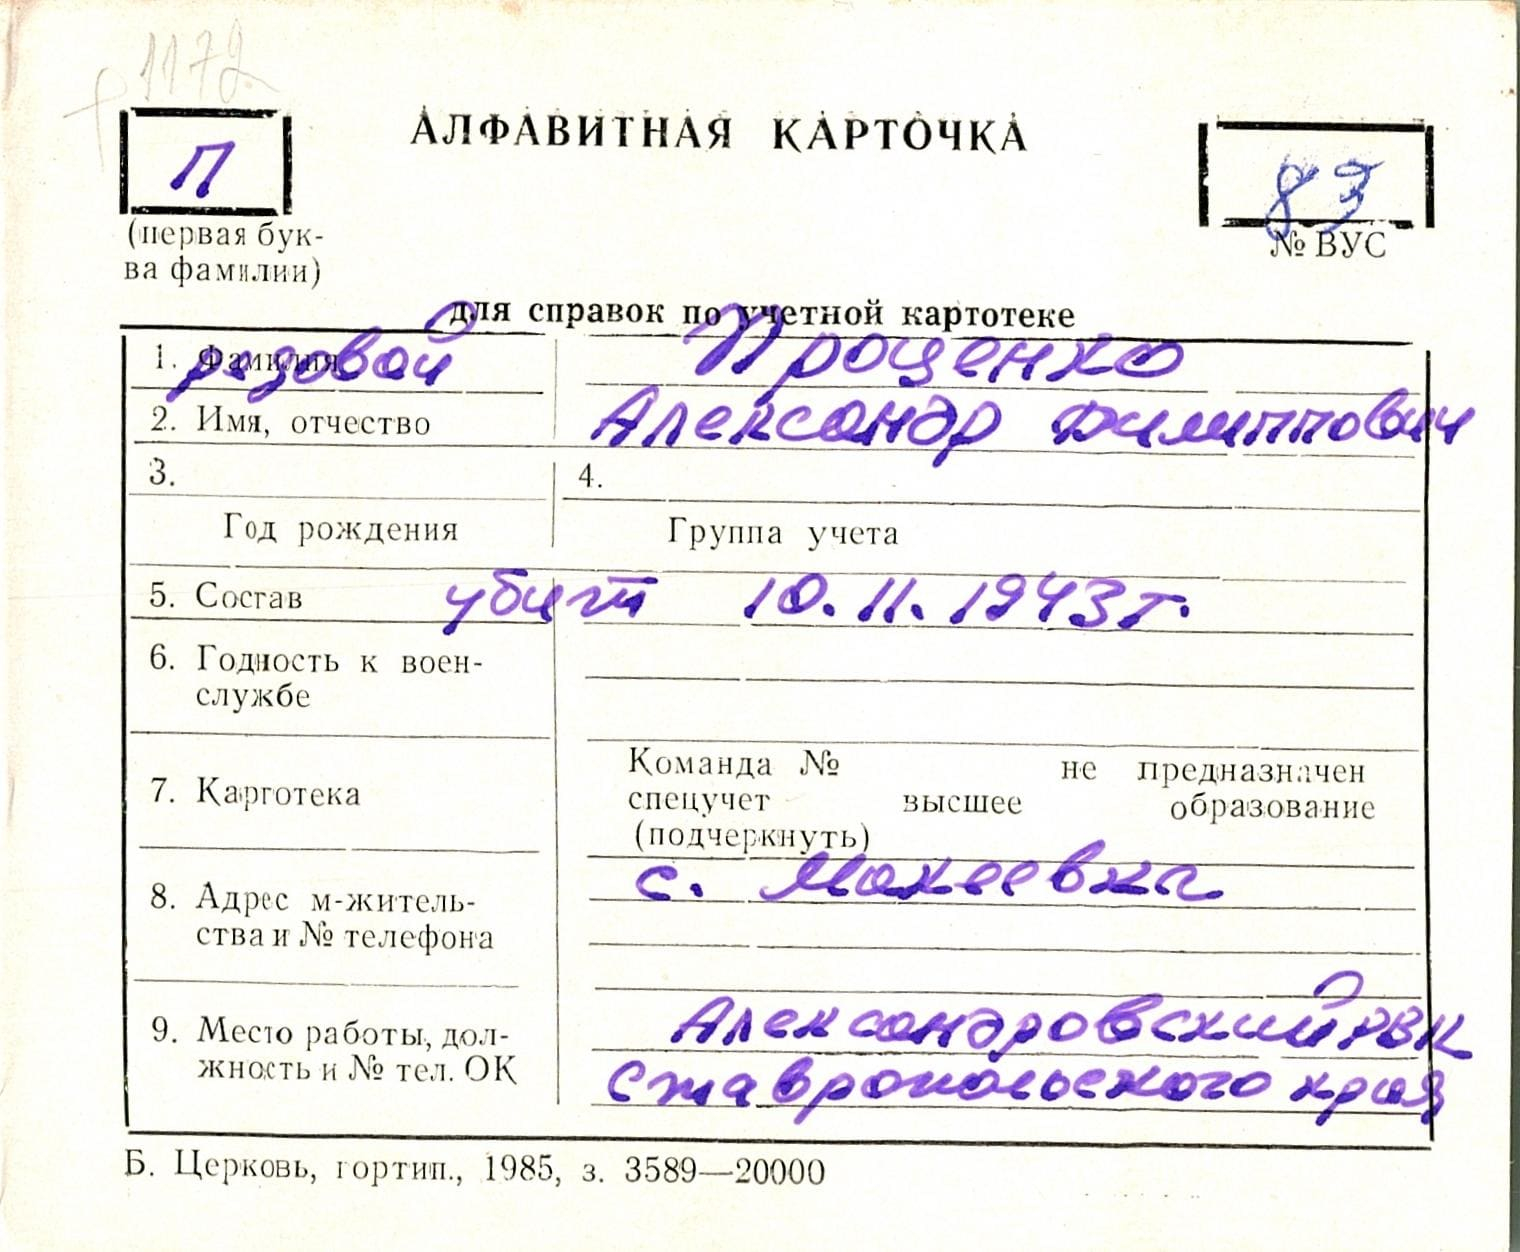 1172
АЛФАВИТНАЯ КАРТОЧКА
П
83
(первая бук-
ва фамилии)
№ ВУС
для справок по учетной картотеке
1. Фамилия рядовой Проценко
2. Имя, отчество Александр Филиппович
3. 4.
Год рождения Группа учета
5. Состав убит 10.11.1943 г.
6. Годность к воен-
службе
Команда № не предназначен
7. Картотека спецучет высшее образование
(подчеркнуть)
с. Макеевка
8. Адрес м-житель-
ства и № телефона
9. Место работы, дол- Александровский РВК
жность и № тел. ОК Ставропольского края
Б. Церковь, гортип., 1985, з. 3589—20000